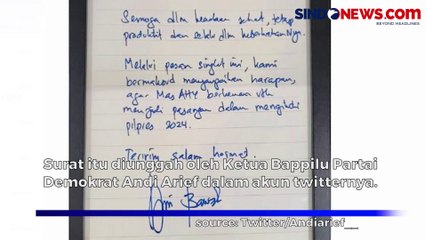 SINDONEWS.COM
BEYOND HEADLINES
Semoga dlm keadaan sehat, tetap
produktif dan selalu dlm keberkahanNya.
Melalui pesan singkat ini, kami
bermaksud menyampaikan harapan,
agar Mas AHY berkenan utk
menjadi pasangan dalam mengikuti
pilpres 2024.
Teriring salam hormat
Surat itu diunggah oleh Ketua Bappilu Partai
Demokrat Andi Arief dalam akun twitternya.
source: Twitter/Andiarief__